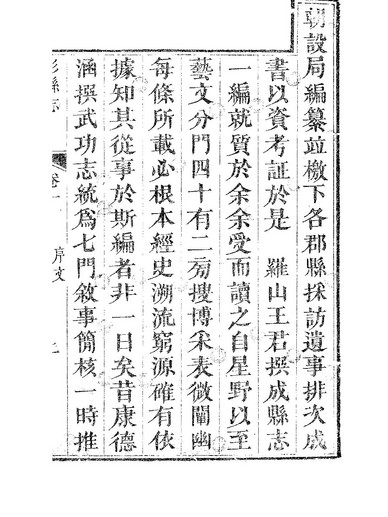 朝設局編纂並檄下各郡縣採訪遺事排次成
書以資考証於是　羅山王君撰成縣志
一編就質於余余受而讀之自星野以至
藝文分門四十有二旁搜博采表微闡幽
每條所載必根本經史溯流窮源確有依
據知其從事於斯編者非一日矣昔康德
涵撰武功志統爲七門敘事簡核一時推
縣志　卷一　序文